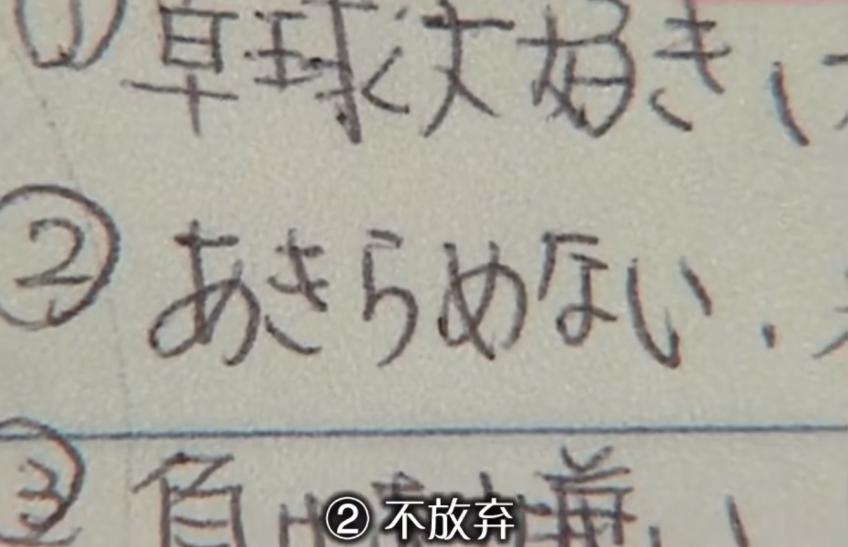 ① 卓球大好き、
② あきらめない.
③ 負け
② 不放弃